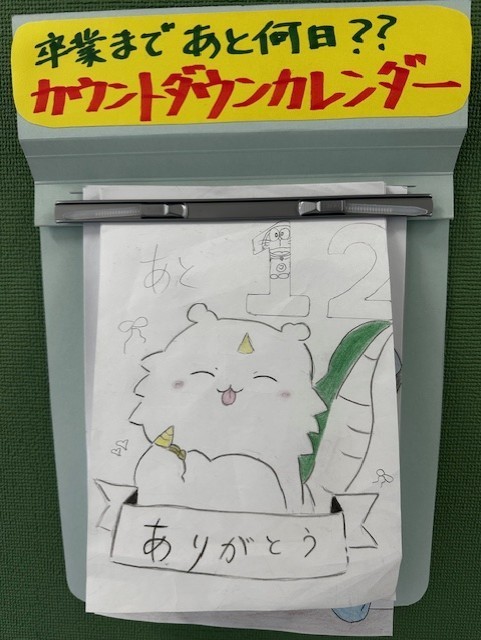 卒業まであと何日??
カウントダウンカレンダー
あと 12
ありがとう